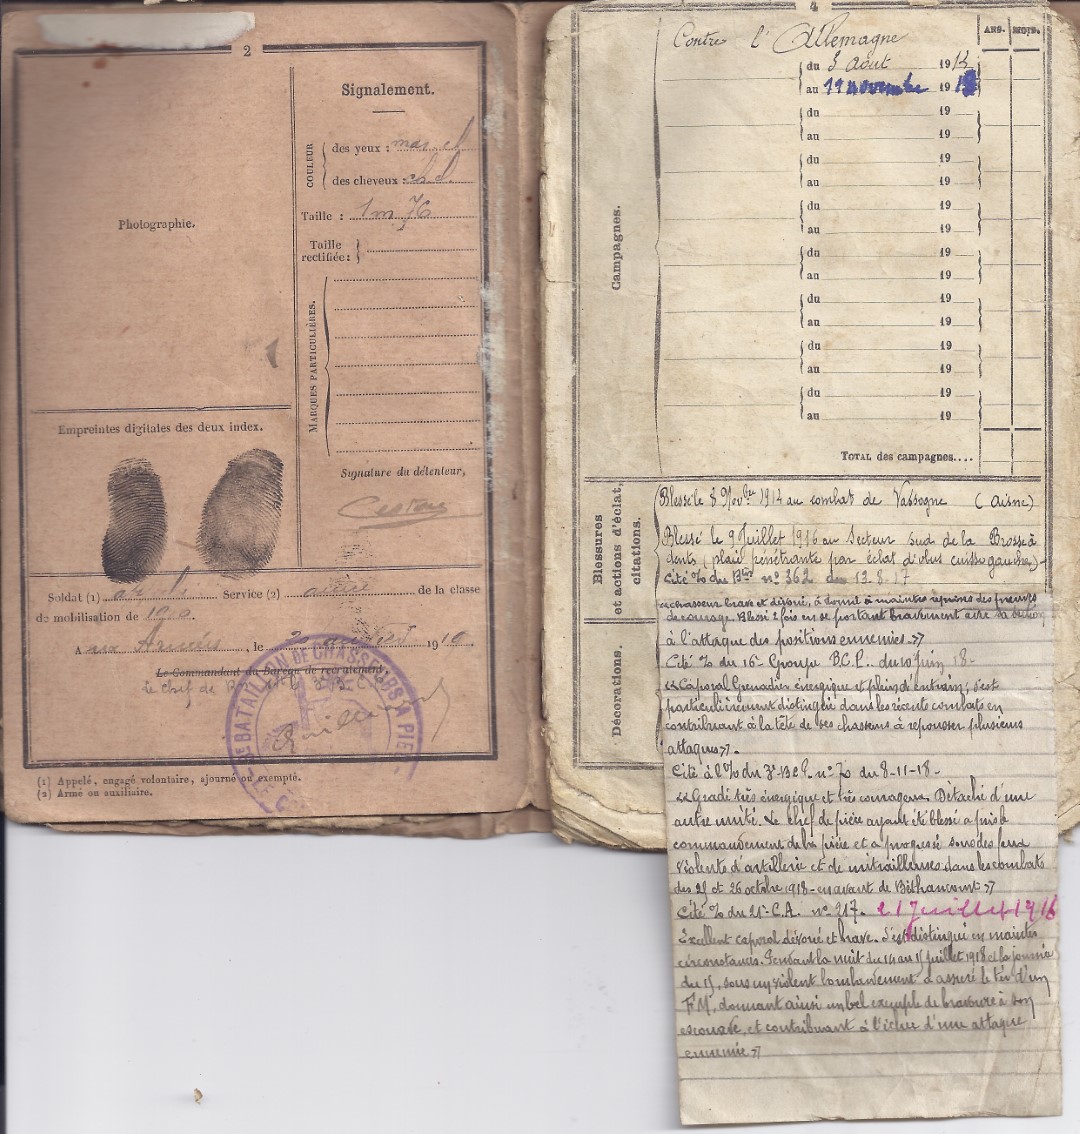 2
Photographie.
Signalement.
COULEUR
des yeux :
des cheveux :
Taille : 1m 76
Taille
rectifiée :
MARQUES PARTICULIÈRES.
Empreintes digitales des deux index.
Signature du détenteur,
Soldat (1) Service (2) de la classe
de mobilisation de 19
A aux Armées, le 1910
Le Commandant du Bureau de recrutement,
le chef de
BATAILLON DE CHASSEURS A PIE
(1) Appelé, engagé volontaire, ajourné ou exempté.
(2) Armé ou auxiliaire.
4
ANS. MOIS.
Contre l'Allemagne
Campagnes.
du 3 Août 1914
au 11 novembre 1918
du 19
au 19
du 19
au 19
du 19
au 19
du 19
au 19
du 19
au 19
du 19
au 19
du 19
au 19
TOTAL des campagnes....
Blessures
et actions d'éclat,
citations.
Décorations.
Blessé le 8 Novbre 1914 au combat de Vassogne (Aisne)
Blessé le 9 Juillet 1916 au Secteur sud de la Brosse à
dents (plaie pénétrante par éclat d'obus cuisse gauche)
Cité % du Bton n° 362 du 13.8.17
«chasseur brave et dévoué, à donné à maintes reprises des preuves
de courage. Blessé 2 fois en se portant bravement avec sa section
à l'attaque des positions ennemies.»
Cité % du 16e Groupe B.C.P. du 10 Juin 18-
«Caporal Grenadier énergique et plein d'entrain; s'est
particulièrement distingué dans les récents combats en
contribuant à la tête de ses chasseurs à repousser plusieurs
attaques».
Cité à l'% du 3e B.C.P. n° 70 du 8-11-18-
«Gradé très énergique et très courageux. Détaché d'une
autre unité. Le chef de pièce ayant été blessé a pris le
commandement de la pièce et a progressé sous des feux
violents d'artillerie et de mitrailleuses dans les combats
des 25 et 26 octobre 1918- en avant de Béthancourt»
Cité % du 21e C.A. n° 217. 21 Juillet 1916
Excellent caporal dévoué et brave. S'est distingué en maintes
circonstances. Pendant la nuit du 14 au 15 juillet 1918 et la journée
du 15, sous un violent bombardement a assuré le tir d'un
F.M. donnant ainsi un bel exemple de bravoure à son
escouade, et contribuant à l'échec d'une attaque
ennemie»